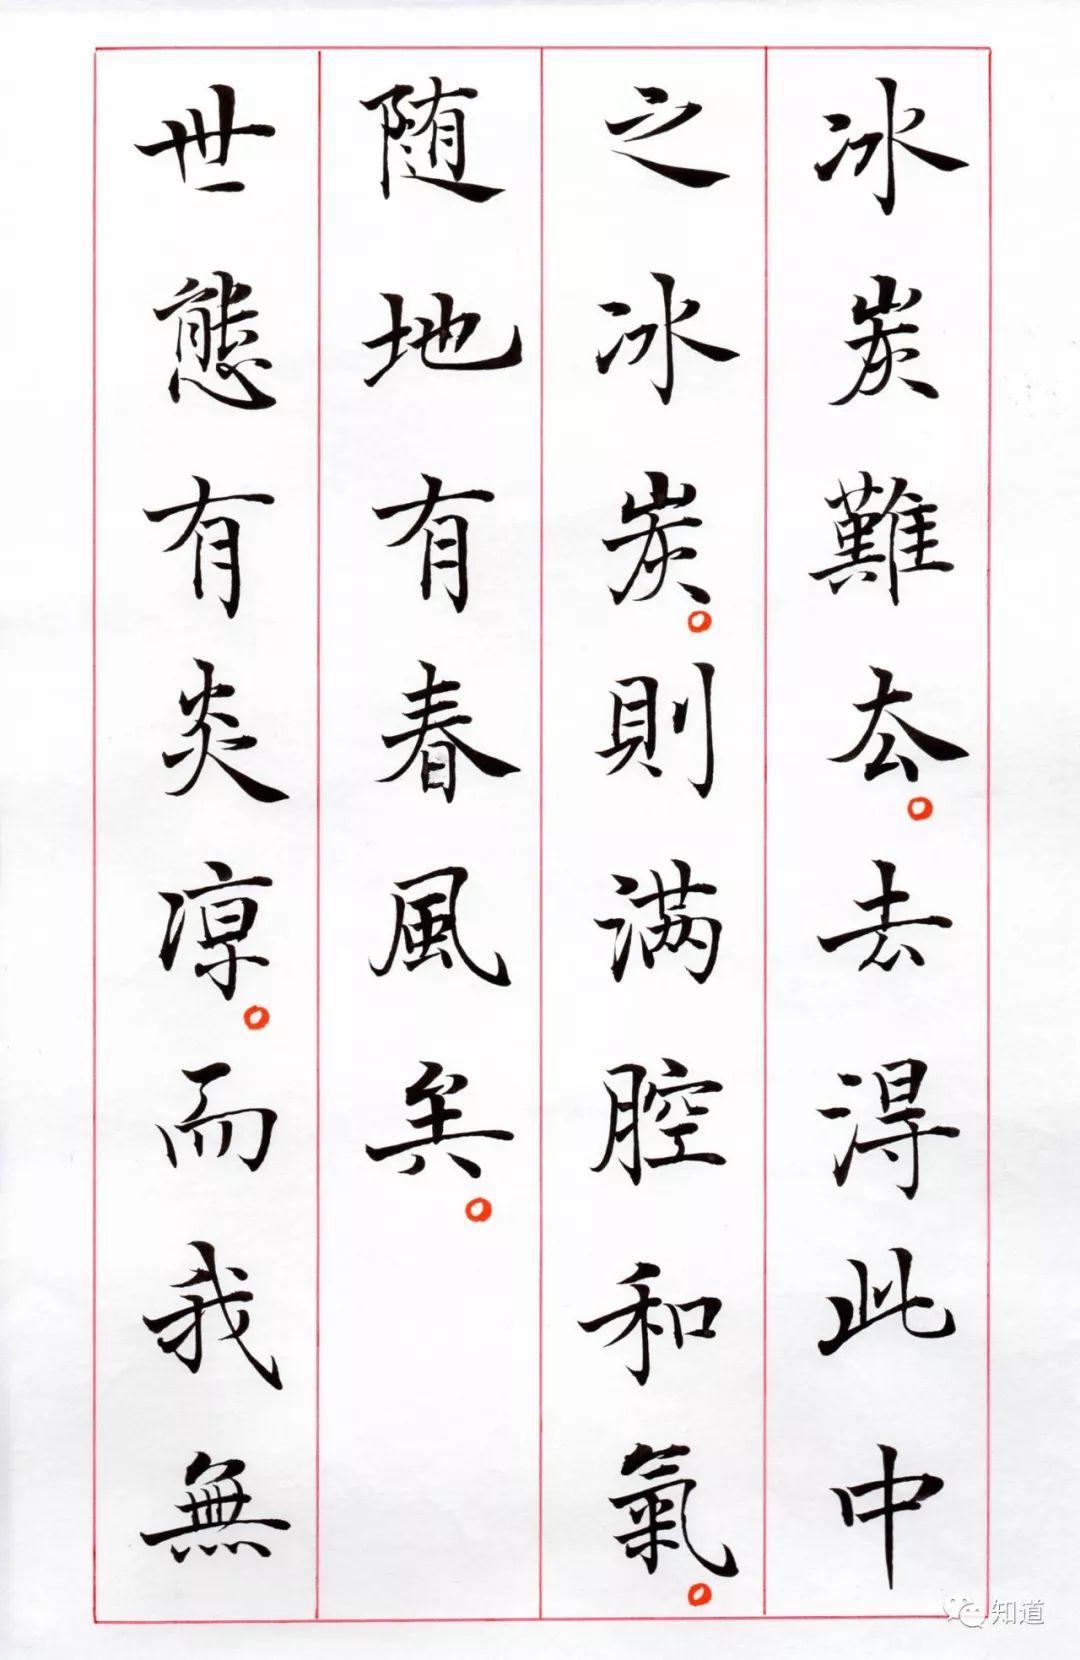 冰炭難去。去得此中
之冰炭。則满腔和氣。
随地有春風矣。
世態有炎凉。而我無
知道